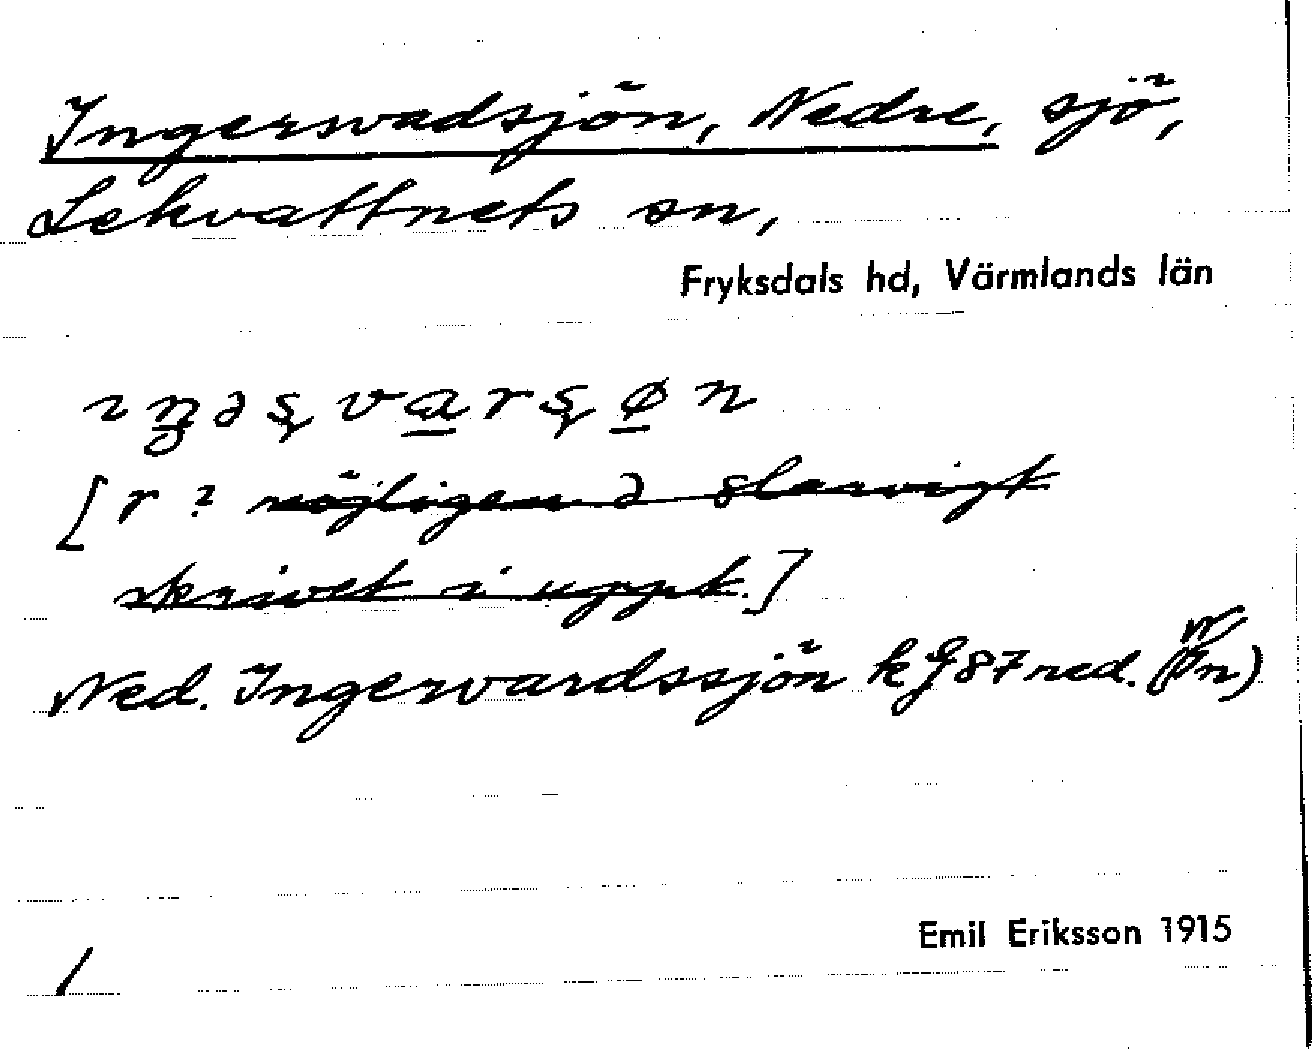 Ingersvadsjön, Nedre, sjö,
Lekvattnets sn,
Fryksdals hd, Värmlands län
ıŋəʂvarʂøn
[r ? möjligen ə slarvigt
skrivet i uppt.]
Ned. Ingervardssjön k 87 ned.
Emil Eriksson 1915
/